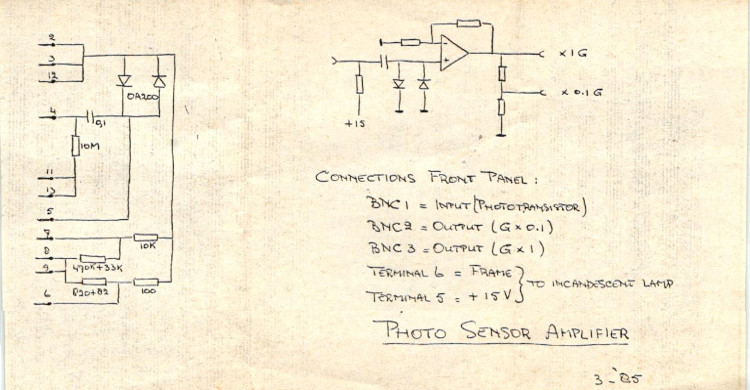 2
3
12
OA200
4
0,1
10M
11
13
5
7
10K
8
470K+33K
9
820+82
100
6
- +
×1G
×0.1G
+15
CONNECTIONS FRONT PANEL :
BNC 1 = INPUT (PHOTOTRANSISTOR)
BNC 2 = OUTPUT (G×0.1)
BNC 3 = OUTPUT (G×1)
TERMINAL 6 = FRAME
TERMINAL 5 = +15V
TO INCANDESCENT LAMP
PHOTO SENSOR AMPLIFIER
3-'85